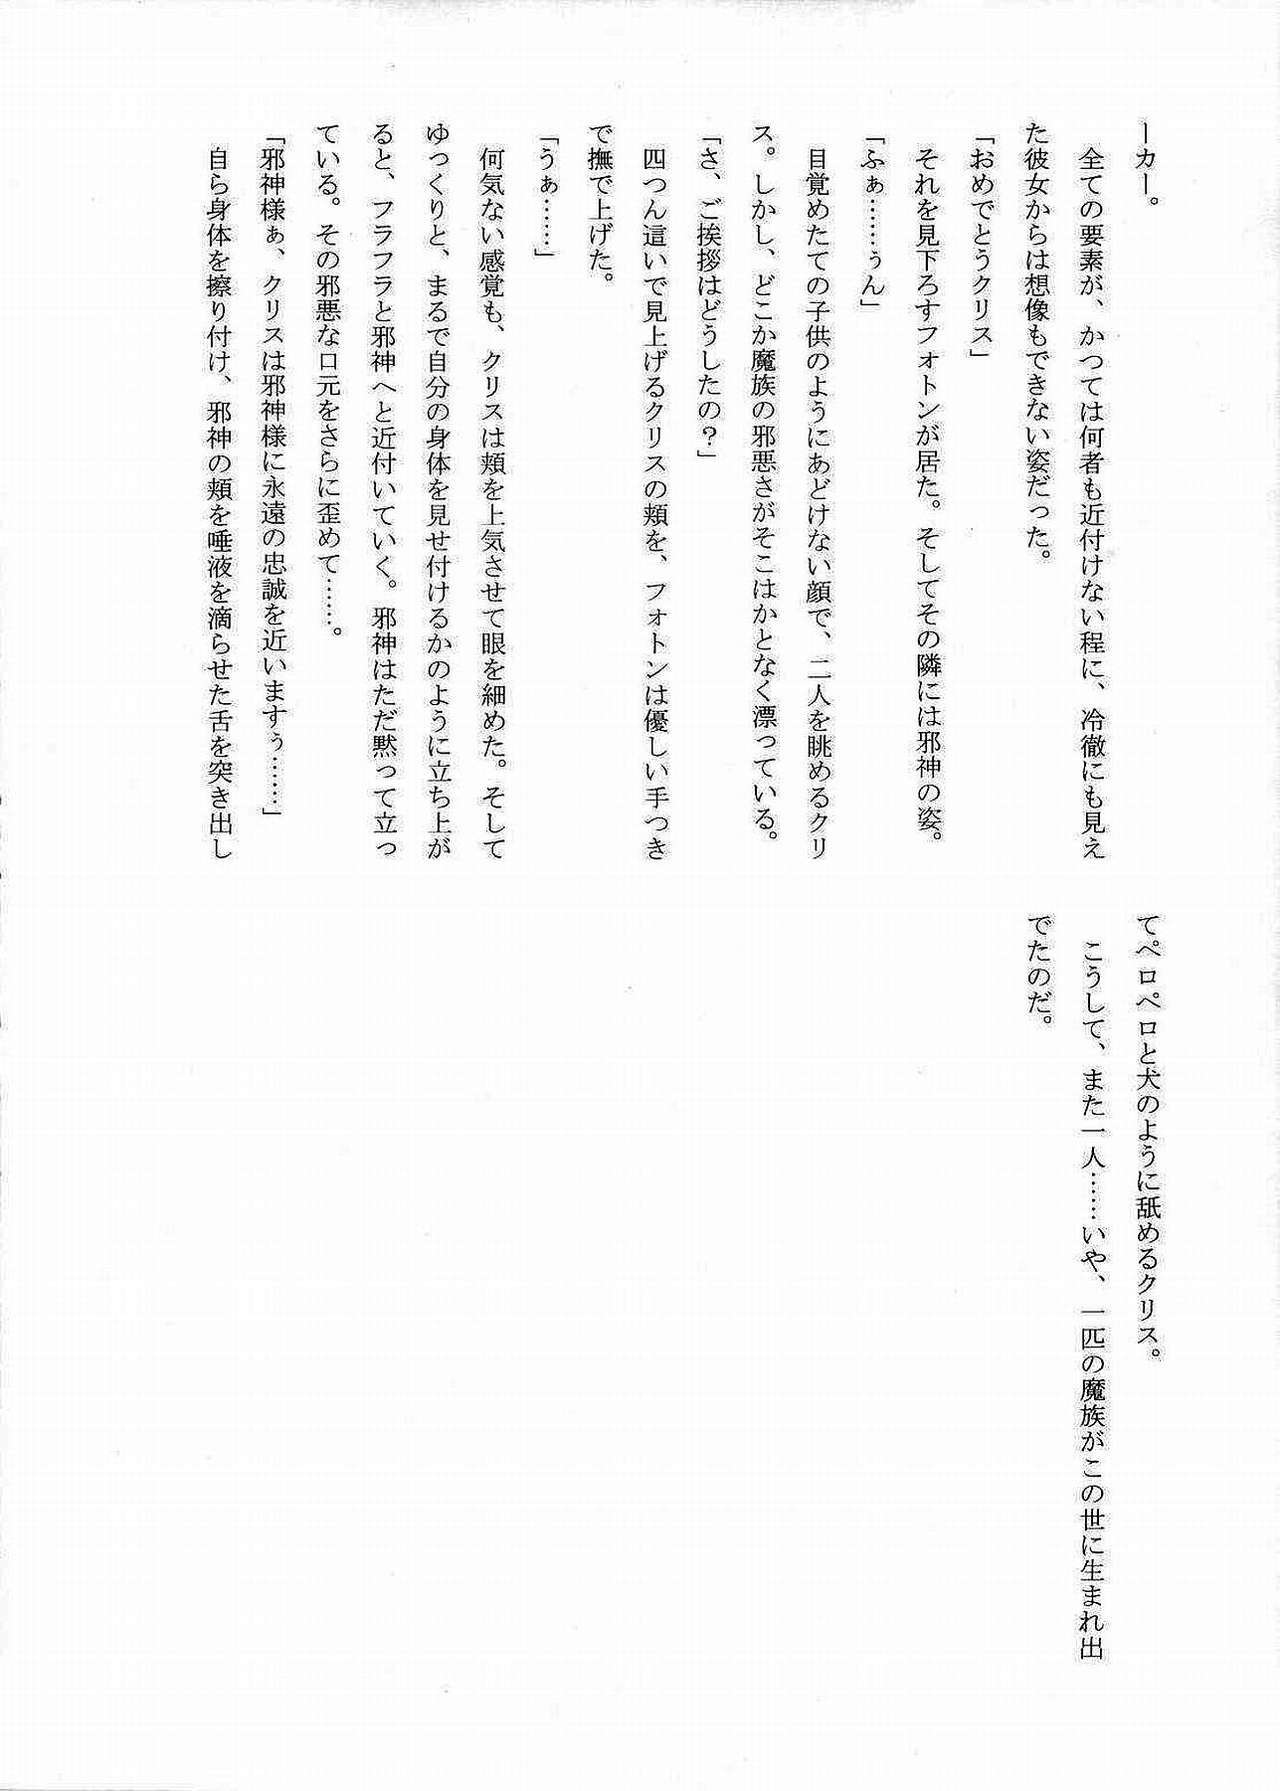 ーカー。
　全ての要素が、かつては何者も近付けない程に、冷徹にも見え
た彼女からは想像もできない姿だった。
「おめでとうクリス」
　それを見下ろすフォトンが居た。そしてその隣には邪神の姿。
「ふぁ……ぅん」
　目覚めたての子供のようにあどけない顔で、二人を眺めるクリ
ス。しかし、どこか魔族の邪悪さがそこはかとなく漂っている。
「さ、ご挨拶はどうしたの？」
　四つん這いで見上げるクリスの頬を、フォトンは優しい手つき
で撫で上げた。
「うぁ……」
　何気ない感覚も、クリスは頬を上気させて眼を細めた。そして
ゆっくりと、まるで自分の身体を見せ付けるかのように立ち上が
ると、フラフラと邪神へと近付いていく。邪神はただ黙って立っ
ている。その邪悪な口元をさらに歪めて……。
「邪神様ぁ、クリスは邪神様に永遠の忠誠を近いますぅ……」
　自ら身体を擦り付け、邪神の頬を唾液を滴らせた舌を突き出し
てペロペロと犬のように舐めるクリス。
　こうして、また一人……いや、一匹の魔族がこの世に生まれ出
でたのだ。